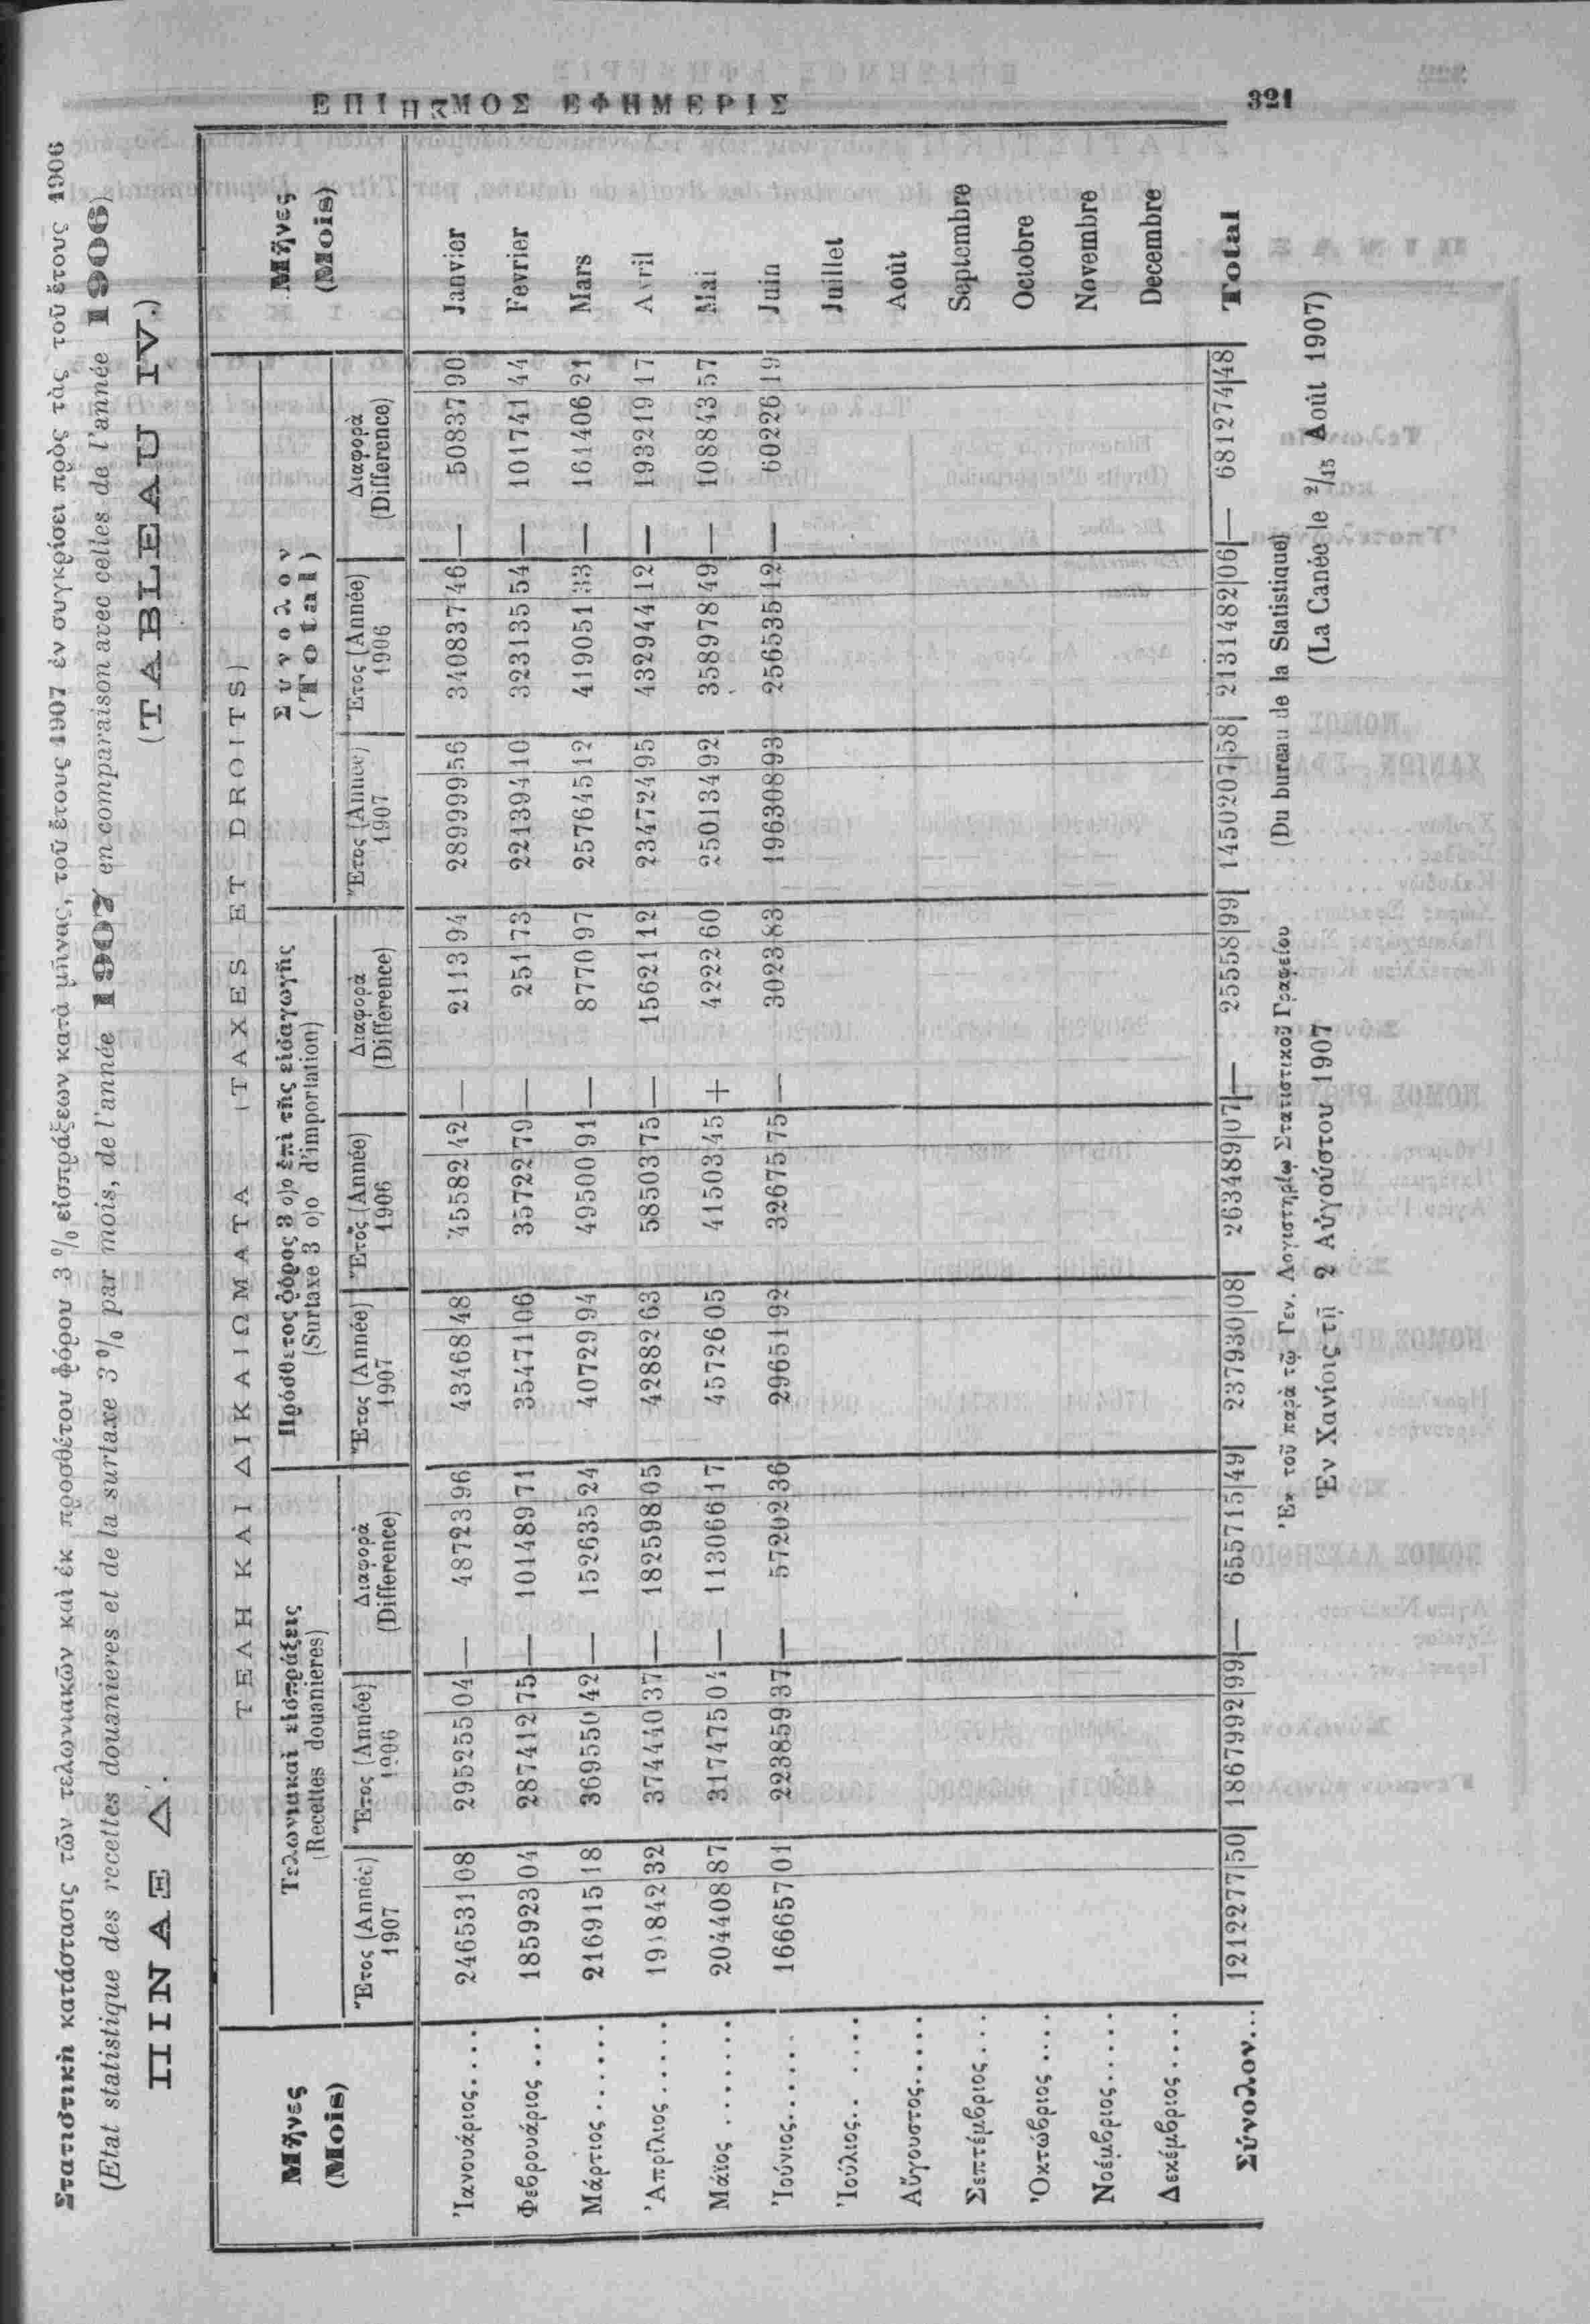 ΕΠΙΣΗΜΟΣ ΕΦΗΜΕΡΙΣ 321
Στατιστικὴ κατάστασις τῶν τελωνιακῶν καὶ ἐκ προσθέτου φόρου 3 % εἰσπράξεων κατὰ μῆνας, τοῦ ἔτους 1907 ἐν συγκρίσει πρὸς τὰς τοῦ ἔτους 1906
(Etat statistique des recettes douanieres et de la surtaxe 3 % par mois, de l'année 1907 en comparaison avec celles de l'année 1906)
ΠΙΝΑΞ Δ΄. (TABLEAU IV.)
ΤΕΛΗ ΚΑΙ ΔΙΚΑΙΩΜΑΤΑ (TAXES ET DROITS)
Μῆνες (Mois) Τελωνιακαὶ εἰσπράξεις (Recettes douanieres) Πρόσθετος φόρος 3 ο)ο ἐπὶ τῆς εἰσαγωγῆς (Surtaxe 3 ο)ο d'importation) Σύνολον (Total) Μῆνες (Mois)
Ἔτος (Année) 1907 Ἔτος (Année) 1906 Διαφορὰ (Difference) Ἔτος (Année) 1907 Ἔτος (Année) 1906 Διαφορὰ (Difference) Ἔτος (Année) 1907 Ἔτος (Année) 1906 Διαφορὰ (Difference)
Ἰανουάριος.... 246531 08 295255 04 — 48723 96 43468 48 45582 42 — 2113 94 289999 56 340837 46 — 50837 90 Janvier
Φεβρουάριος ... 185923 04 287412 75 — 101489 71 35471 06 35722 79 — 251 73 221394 10 323135 54 — 101741 44 Fevrier
Μάρτιος ...... 216915 18 369550 42 — 152635 24 40729 94 49500 91 — 8770 97 257645 12 419051 33 — 161406 21 Mars
Ἀπρίλιος ..... 191842 32 374440 37 — 182598 05 42882 63 58503 75 — 15621 12 234724 95 432944 12 — 193219 17 Avril
Μάϊος ....... 204408 87 317475 04 — 113066 17 45726 05 41503 45 + 4222 60 250134 92 358978 49 — 108843 57 Mai
Ἰούνιος...... 166657 01 223859 37 — 57202 36 29651 92 32675 75 — 3023 83 196308 93 256535 12 — 60226 19 Juin
Ἰούλιος.. .... Juillet
Αὔγουστος..... Août
Σεπτέμβριος ... Septembre
Ὀκτώβριος .... Octobre
Νοέμβριος..... Novembre
Δεκέμβριος .... Decembre
Σύνολον... 1212277 50 1867992 99 — 655715 49 237930 08 263489 07 — 25558 99 1450207 58 2131482 06 — 681274 48 Total
Ἐκ τοῦ παρὰ τῷ Γεν. Λογιστηρίῳ Στατιστικοῦ Γραφείου (Du bureau de la Statistique)
Ἐν Χανίοις τῇ 2 Αὐγούστου 1907 (La Canée le 2/15 Août 1907)